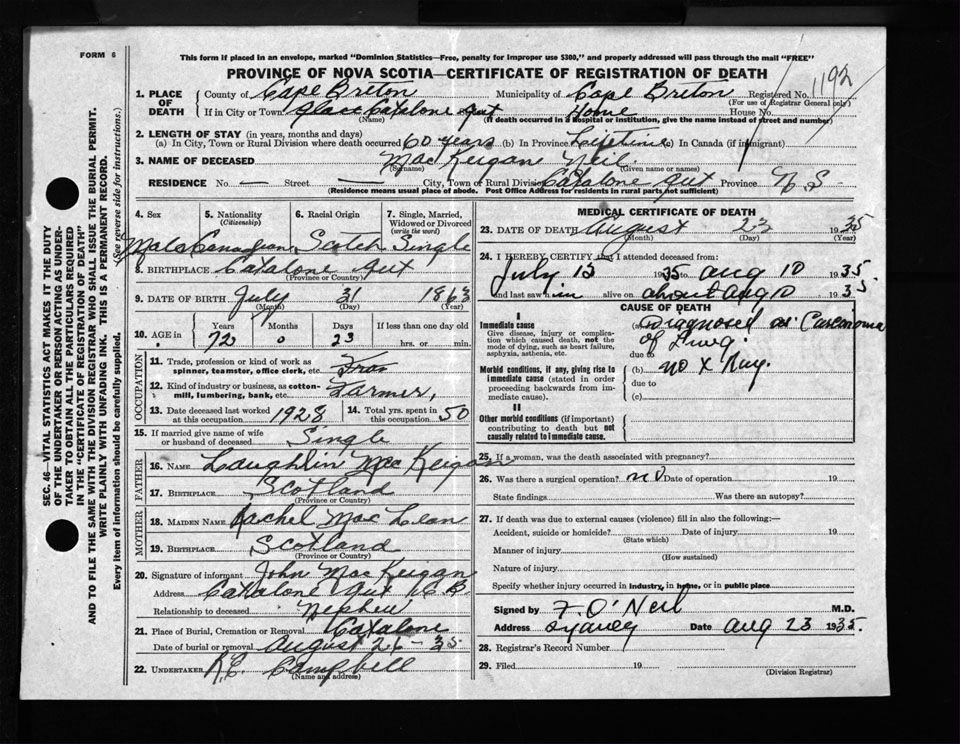 FORM 6
This form if placed in an envelope, marked "Dominion Statistics—Free, penalty for improper use $300," and properly addressed will pass through the mail "FREE"
PROVINCE OF NOVA SCOTIA—CERTIFICATE OF REGISTRATION OF DEATH
1192
1. PLACE OF DEATH County of Cape Breton Municipality of Cape Breton Registered No.
(For use of Registrar General only)
If in City or Town Place Catalone Gut Home House No.
(Name) (If death occurred in a hospital or institution, give the name instead of street and number)
2. LENGTH OF STAY (in years, months and days)
(a) In City, Town or Rural Division where death occurred 60 years (b) In Province Lifetime (c) In Canada (if immigrant)
3. NAME OF DECEASED Mac Keigan Neil
(Surname) (Given name or names)
RESIDENCE No — Street — City, Town or Rural Division Catalone Gut Province N S
(Residence means usual place of abode. Post Office Address for residents in rural parts not sufficient)
4. Sex 5. Nationality 6. Racial Origin 7. Single, Married,
(Citizenship) Widowed or Divorced
(write the word)
Male Canadian Scotch Single
8. BIRTHPLACE Catalone Gut
(Province or Country)
9. DATE OF BIRTH July 31 1863
(Month) (Day) (Year)
10. AGE in Years Months Days If less than one day old
72 0 23 hrs. or min.
OCCUPATION
11. Trade, profession or kind of work as
spinner, teamster, office clerk, etc.
12. Kind of industry or business, as cotton-
mill, lumbering, bank, etc. Farmer,
13. Date deceased last worked 14. Total yrs. spent in
at this occupation 1928 this occupation 50
15. If married give name of wife
or husband of deceased Single
FATHER
16. NAME Laughlin Mac Keigan
17. BIRTHPLACE Scotland
(Province or Country)
MOTHER
18. MAIDEN NAME Rachel Mac Lean
19. BIRTHPLACE Scotland
(Province or Country)
20. Signature of informant John Mac Keigan
Address Catalone Gut N.B.
Relationship to deceased Nephew
21. Place of Burial, Cremation or Removal Catalone
Date of burial or removal August 26 - 35
22. UNDERTAKER Campbell
(Name and address)
MEDICAL CERTIFICATE OF DEATH
23. DATE OF DEATH August 23 1935
(Month) (Day) (Year)
24. I HEREBY CERTIFY that I attended deceased from:
July 15 1935 to Aug 10 1935.
and last saw him alive on about Aug 10 1935.
CAUSE OF DEATH
I
Immediate cause (a) Diagnosed as Carcinoma
Give disease, injury or complication which caused death, not the mode of dying, such as heart failure, asphyxia, asthenia, etc.
of Lung
due to
Morbid conditions, if any, giving rise to immediate cause (stated in order proceeding backwards from immediate cause).
(b) no X Ray.
due to
(c)
II
Other morbid conditions (if important) contributing to death but not causally related to immediate cause.
25. If a woman, was the death associated with pregnancy?
26. Was there a surgical operation? no Date of operation 19
State findings Was there an autopsy?
27. If death was due to external causes (violence) fill in also the following:—
Accident, suicide or homicide? Date of injury 19
(State which)
Manner of injury
(How sustained)
Nature of injury
Specify whether injury occurred in industry, in home, or in public place
Signed by F. O'Neil M.D.
Address Sydney Date Aug 23 1935.
28. Registrar's Record Number
29. Filed 19
(Division Registrar)
SEC. 46—VITAL STATISTICS ACT MAKES IT THE DUTY
OF THE UNDERTAKER OR PERSON ACTING AS UNDER-
TAKER TO OBTAIN ALL THE PARTICULARS REQUIRED
IN THE "CERTIFICATE OF REGISTRATION OF DEATH"
AND TO FILE THE SAME WITH THE DIVISION REGISTRAR WHO SHALL ISSUE THE BURIAL PERMIT.
WRITE PLAINLY WITH UNFADING INK. THIS IS A PERMANENT RECORD.
Every item of information should be carefully supplied. (See reverse side for instructions.)